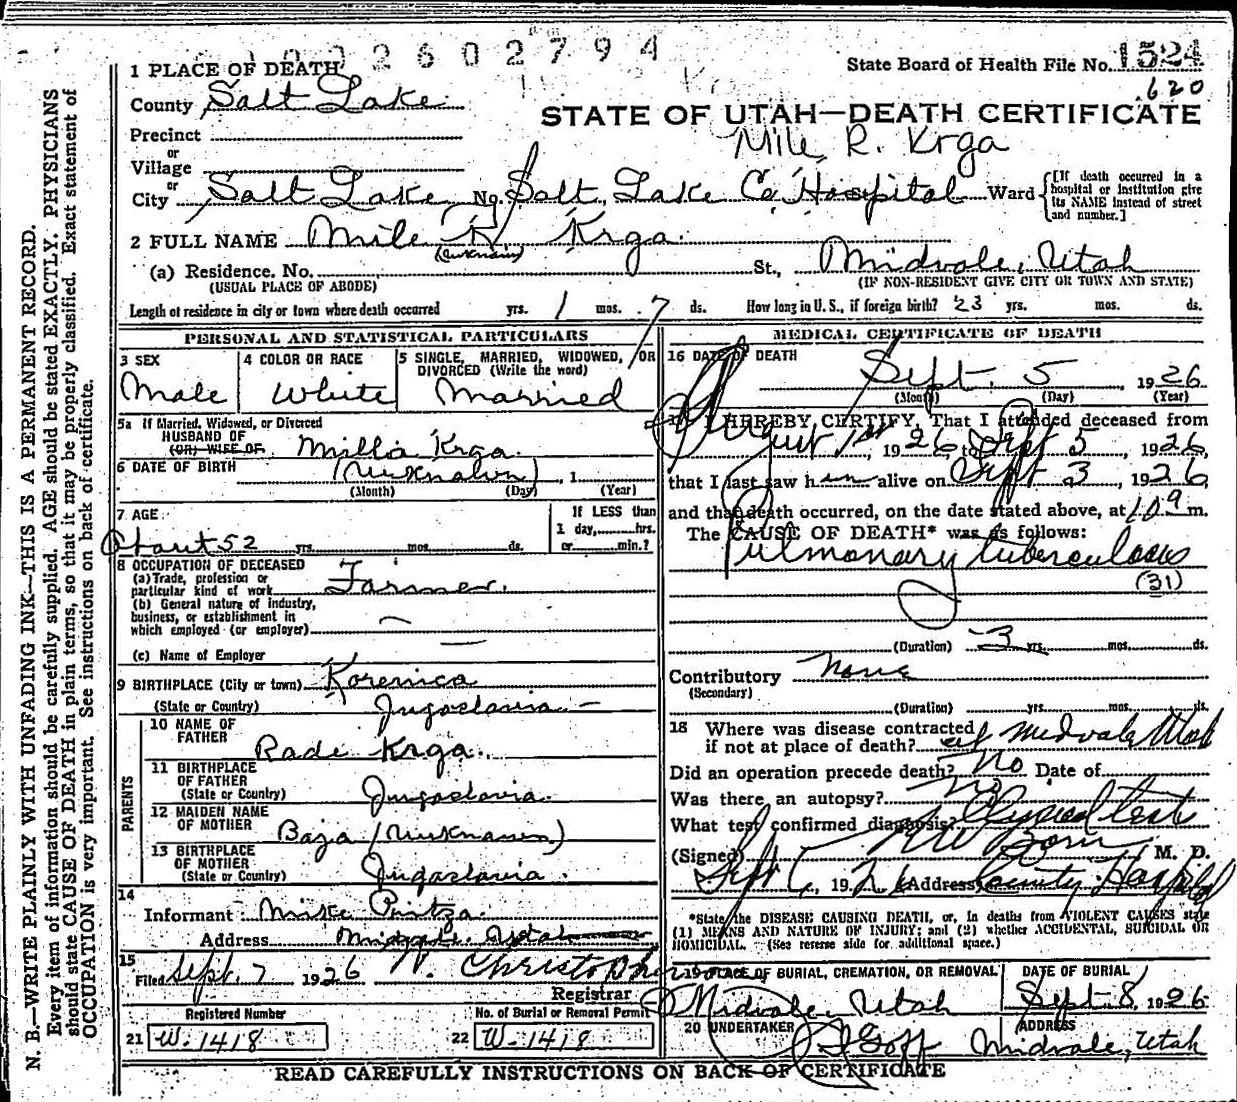 1002602794
State Board of Health File No. 1524
620
1 PLACE OF DEATH
County Salt Lake
STATE OF UTAH—DEATH CERTIFICATE
Mile R. Krga
Precinct
or
Village
or
City Salt Lake No. Salt Lake Co Hospital Ward
[If death occurred in a hospital or institution give its NAME instead of street and number.]
2 FULL NAME Mile R. Krga
(unknown)
(a) Residence. No. St., Midvale, Utah
(USUAL PLACE OF ABODE) (IF NON-RESIDENT GIVE CITY OR TOWN AND STATE)
Length of residence in city or town where death occurred yrs. 1 mos. 7 ds. How long in U. S., if foreign birth? 23 yrs. mos. ds.
PERSONAL AND STATISTICAL PARTICULARS
3 SEX
Male
4 COLOR OR RACE
White
5 SINGLE, MARRIED, WIDOWED, OR DIVORCED (Write the word)
Married
5a If Married, Widowed, or Divorced
HUSBAND OF
(OR) WIFE OF Millia Krga
6 DATE OF BIRTH (Unknown) 1
(Month) (Day) (Year)
7 AGE
About 52 yrs. mos. ds.
If LESS than
1 day,......hrs.
or......min.?
8 OCCUPATION OF DECEASED
(a) Trade, profession or
particular kind of work Farmer
(b) General nature of industry,
business, or establishment in
which employed (or employer)
(c) Name of Employer
9 BIRTHPLACE (City or town) Korenica
(State or Country) Jugoslavia
PARENTS
10 NAME OF
FATHER Rade Krga
11 BIRTHPLACE
OF FATHER
(State or Country) Jugoslavia
12 MAIDEN NAME
OF MOTHER Baja (Unknown)
13 BIRTHPLACE
OF MOTHER
(State or Country) Jugoslavia
14
Informant Mike
Address Midvale, Utah
15
Filed Sept. 7 1926 W. Christopherson
Registrar
Registered Number No. of Burial or Removal Permit
21 W-1418 22 W-1418
MEDICAL CERTIFICATE OF DEATH
16 DATE OF DEATH
Sept. 5, 1926
(Month) (Day) (Year)
17 I HEREBY CERTIFY, That I attended deceased from
August 1st 1926 to Sept 5, 1926,
that I last saw him alive on Sept 3, 1926
and that death occurred, on the date stated above, at 10 a m.
The CAUSE OF DEATH* was as follows:
Pulmonary tuberculosis
(31)
(Duration) 3 yrs. mos. ds.
Contributory None
(Secondary)
(Duration) yrs. mos. ds.
18 Where was disease contracted
if not at place of death? at Midvale Utah
Did an operation precede death? No Date of
Was there an autopsy? No
What test confirmed diagnosis? Physical test
(Signed) M. D.
Sept 6, 1926 (Address) County Hospital
*State the DISEASE CAUSING DEATH, or, in deaths from VIOLENT CAUSES state
(1) MEANS AND NATURE OF INJURY; and (2) whether ACCIDENTAL, SUICIDAL OR
HOMICIDAL. (See reverse side for additional space.)
19 PLACE OF BURIAL, CREMATION, OR REMOVAL
Midvale, Utah
DATE OF BURIAL
Sept. 8, 1926
20 UNDERTAKER
Goff
ADDRESS
Midvale, Utah
READ CAREFULLY INSTRUCTIONS ON BACK OF CERTIFICATE
N. B.—WRITE PLAINLY WITH UNFADING INK—THIS IS A PERMANENT RECORD.
Every item of information should be carefully supplied. AGE should be stated EXACTLY. PHYSICIANS
should state CAUSE OF DEATH in plain terms, so that it may be properly classified. Exact statement of
OCCUPATION is very important. See instructions on back of certificate.